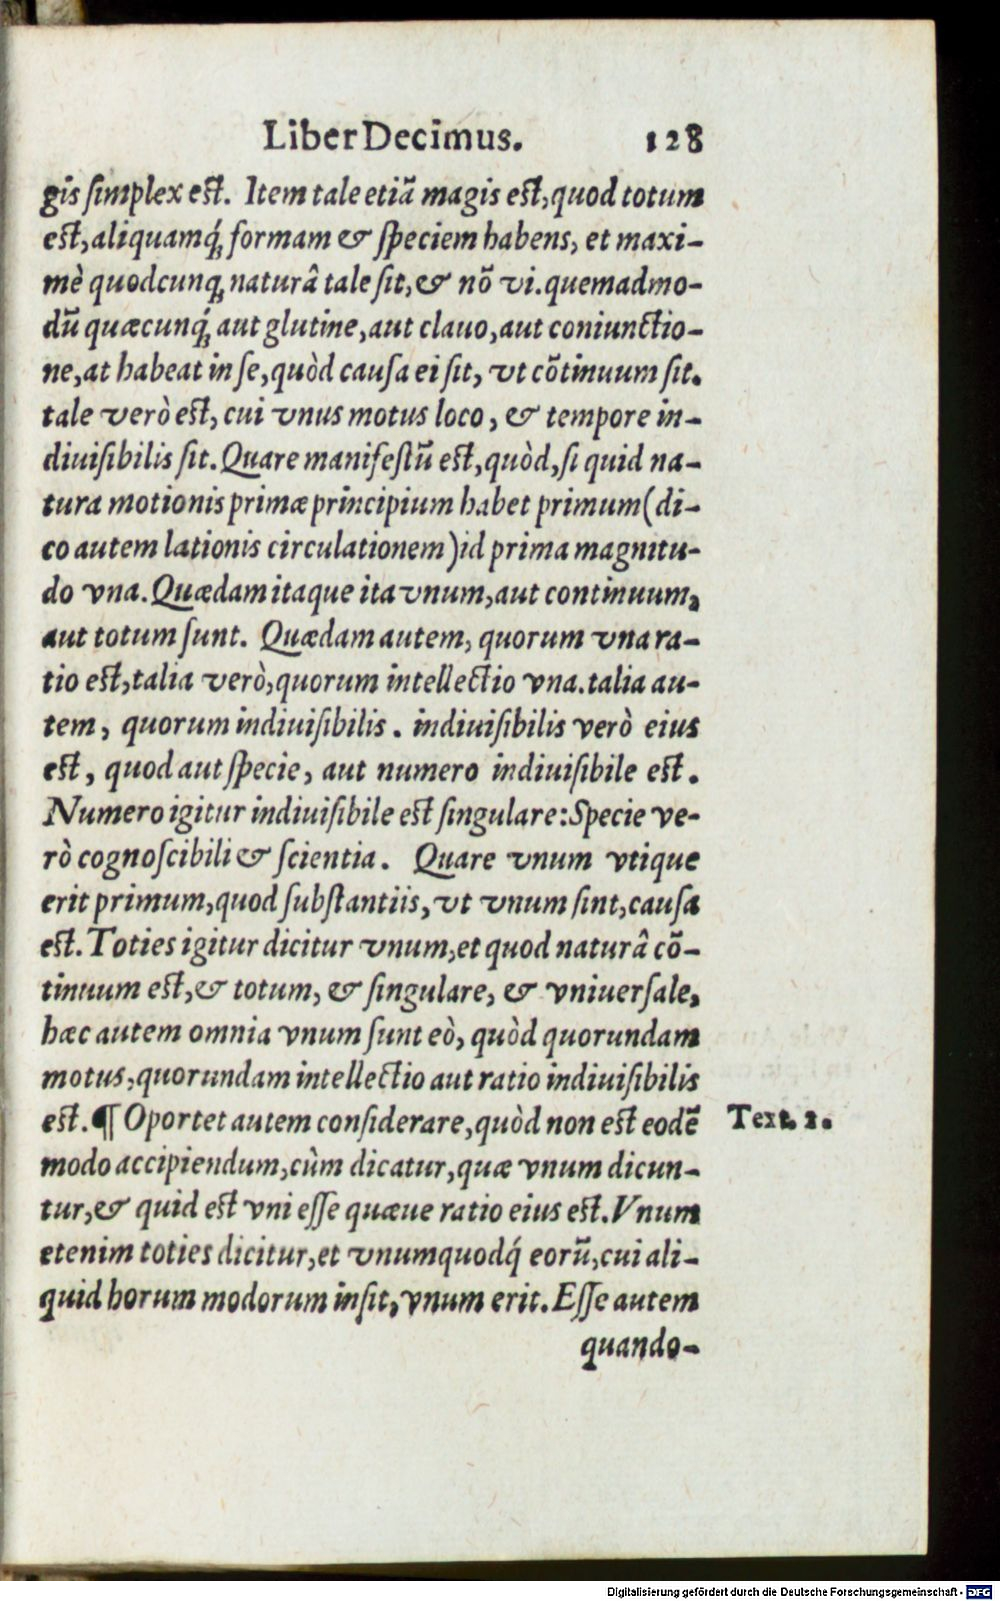 Liber Decimus. 128
gis ſimplex eſt. Item tale etiā magis eſt, quod totum
eſt, aliquamq́; formam & ſpeciem habens, et maxi-
mè quodcunq; naturâ tale ſit, & nō vi. quemadmo-
dū quæcunq́; aut glutine, aut clauo, aut coniunctio-
ne, at habeat in ſe, quòd cauſa ei ſit, vt cōtinuum ſit.
tale verò eſt, cui vnus motus loco, & tempore in-
diuiſibilis ſit. Quare manifeſtū eſt, quòd, ſi quid na-
tura motionis primæ principium habet primum (di-
co autem lationis circulationem) id prima magnitu-
do vna. Quædam itaque ita vnum, aut continuum,
aut totum ſunt. Quædam autem, quorum vna ra-
tio eſt, talia verò, quorum intellectio vna. talia au-
tem, quorum indiuiſibilis. indiuiſibilis verò eius
eſt, quod aut ſpecie, aut numero indiuiſibile eſt.
Numero igitur indiuiſibile eſt ſingulare: Specie ve-
rò cognoſcibili & ſcientia. Quare vnum vtique
erit primum, quod ſubſtantiis, vt vnum ſint, cauſa
eſt. Toties igitur dicitur vnum, et quod naturâ cō-
tinuum eſt, & totum, & ſingulare, & vniuerſale,
hæc autem omnia vnum ſunt eò, quòd quorundam
motus, quorundam intellectio aut ratio indiuiſibilis
eſt. ¶ Oportet autem conſiderare, quòd non eſt eodē Text. 2.
modo accipiendum, cùm dicatur, quæ vnum dicun-
tur, & quid eſt vni eſſe quæue ratio eius eſt. Vnum
etenim toties dicitur, et vnumquodq́ eorū, cui ali-
quid horum modorum inſit, vnum erit. Eſſe autem
quando-
Digitalisierung gefördert durch die Deutsche Forschungsgemeinschaft - DFG